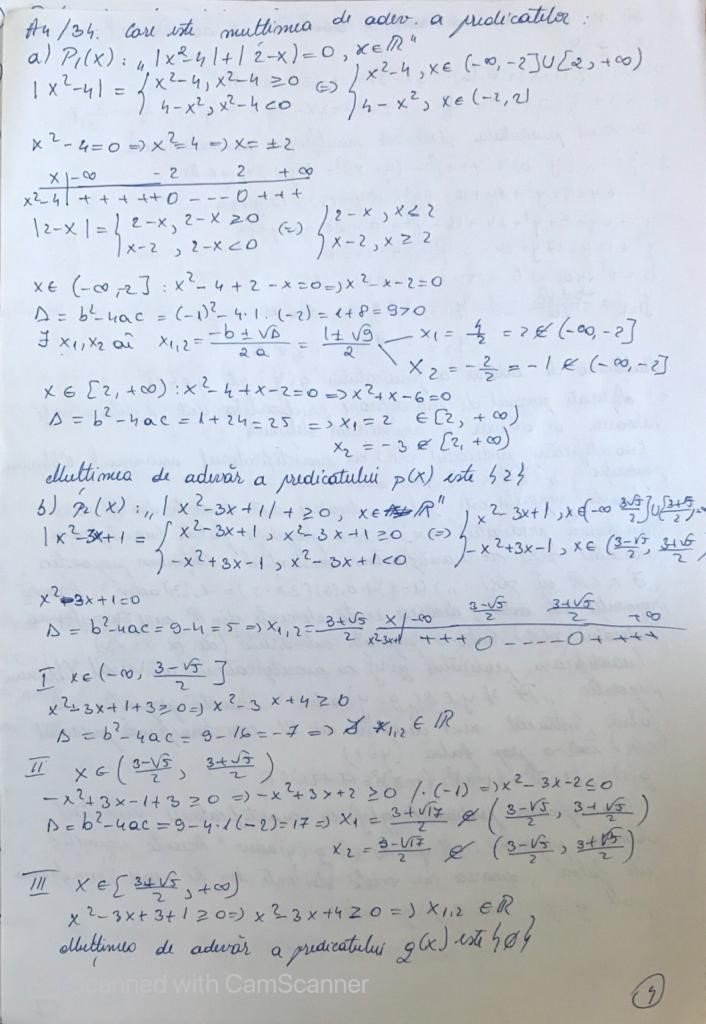 A4/34. Care este mulțimea de adev. a predicatelor:
a) P₁(x): „|x²-4|+|2-x|=0, x∈ℝ"
|x²-4| = { x²-4, x²-4≥0 (=) { x²-4, x∈(-∞,-2]∪[2,+∞)
4-x², x²-4<0 4-x², x∈(-2,2)
x²-4=0 => x²=4 => x=±2
x | -∞ -2 2 +∞
x²-4 | + + + + + 0 - - - 0 + + +
|2-x| = { 2-x, 2-x≥0 (=) { 2-x, x<2
x-2, 2-x<0 x-2, x≥2
x∈(-∞,-2]: x²-4+2-x=0 => x²-x-2=0
Δ=b²-4ac=(-1)²-4·1·(-2)=1+8=9>0
∃ x₁,x₂ aî x₁,₂ = (-b±√Δ)/2a = (1±√9)/2 x₁=4/2=2∉(-∞,-2]
x₂=-2/2=-1∉(-∞,-2]
x∈[2,+∞): x²-4+x-2=0 => x²+x-6=0
Δ=b²-4ac=1+24=25 => x₁=2 ∈[2,+∞)
x₂=-3∉[2,+∞)
Mulțimea de adevăr a predicatului p(x) este {2}
b) P₂(x): „|x²-3x+1|+≥0, x∈ℝ"
|x²-3x+1 = { x²-3x+1, x²-3x+1≥0 (=) { x²-3x+1, x∈(-∞ (3-√5)/2]∪[(3+√5)/2
-x²+3x-1, x²-3x+1<0 -x²+3x-1, x∈((3-√5)/2, (3+√5)/2
x²-3x+1=0
Δ=b²-4ac=9-4=5 => x₁,₂=(3±√5)/2 x | -∞ (3-√5)/2 (3+√5)/2 +∞
x²-3x+1 | + + + 0 - - - - 0 + + + +
I x∈(-∞, (3-√5)/2]
x²-3x+1+3≥0 => x²-3x+4≥0
Δ=b²-4ac=9-16=-7 => ∄ x₁,₂∈ℝ
II x∈((3-√5)/2, (3+√5)/2)
-x²+3x-1+3≥0 => -x²+3x+2≥0 /·(-1) => x²-3x-2≤0
Δ=b²-4ac=9-4·1(-2)=17 => x₁=(3+√17)/2 ∉ ((3-√5)/2, (3+√5)/2)
x₂=(3-√17)/2 ∉ ((3-√5)/2, (3+√5)/2)
III x∈[(3+√5)/2, +∞)
x²-3x+3+1≥0 => x²-3x+4≥0 => x₁,₂∈ℝ
Mulțimea de adevăr a predicatului q(x) este {∅}
Scanned with CamScanner